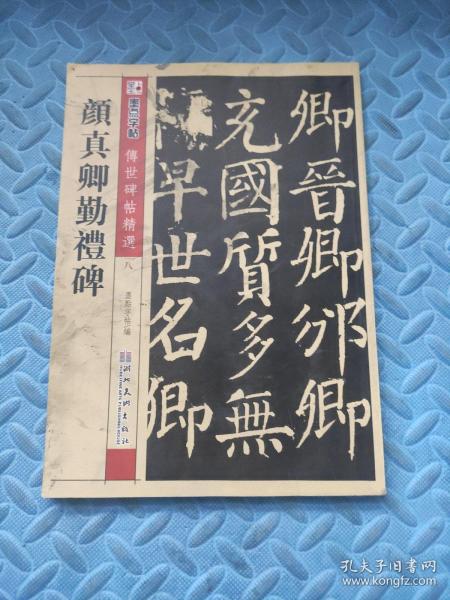 顔真卿勤禮碑
墨点字帖
傳世碑帖精選
八
墨點字帖編
湖北美術出版社
卿晉卿邠卿
充國質多無
早世名卿
孔夫子旧书网
www.kongfz.com